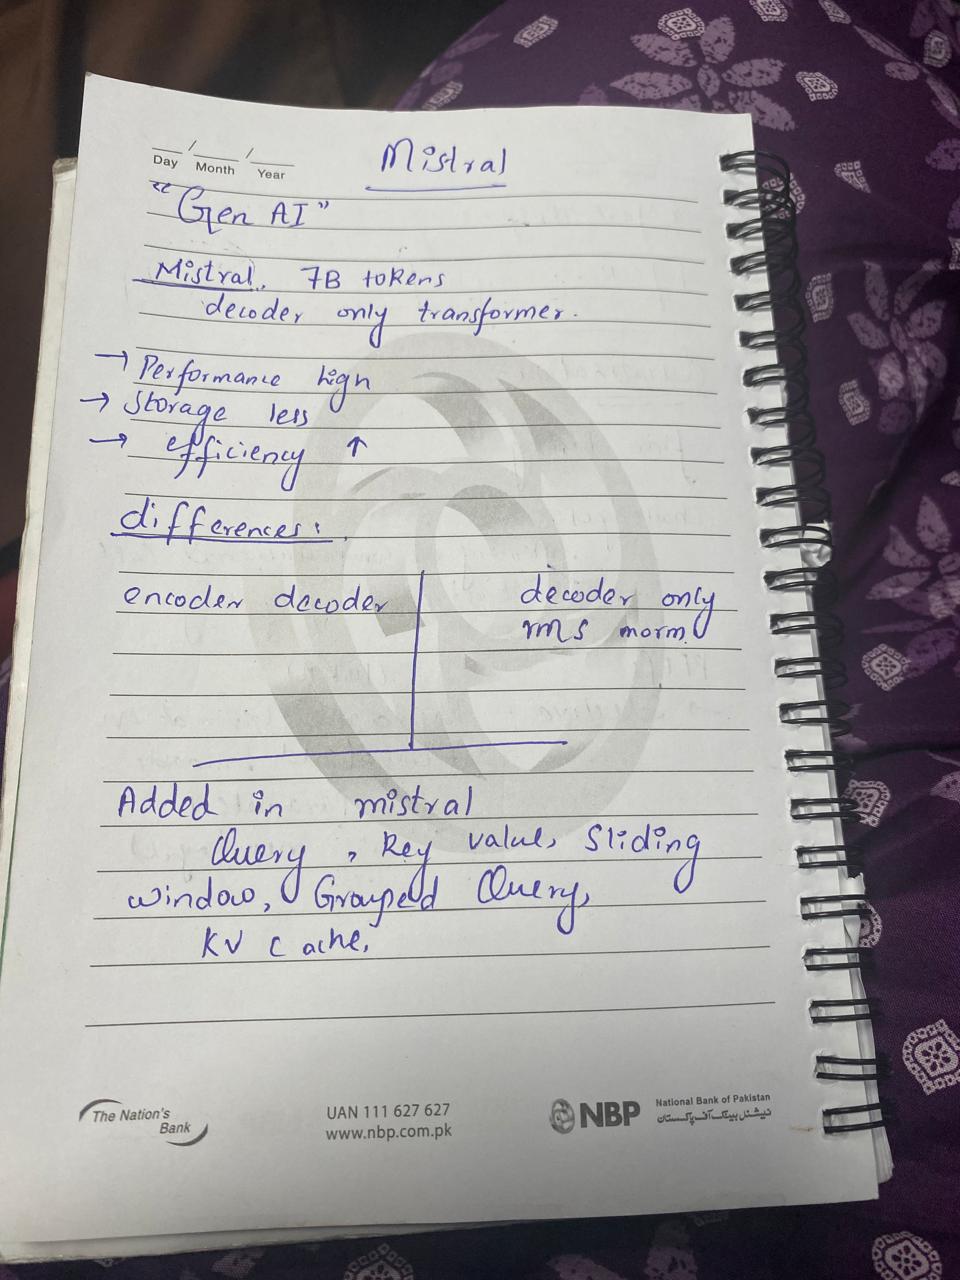 Mistral
Day / Month / Year
"Gen AI"
Mistral. 7B tokens
decoder only transformer.
→ Performance high
→ Storage less
→ efficiency ↑
differences:
encoder decoder
decoder only
rms norm.
Added in mistral
Query, Key value, Sliding
window, Grouped Query,
KV Cache,
The Nation's
Bank
UAN 111 627 627
www.nbp.com.pk
NBP
National Bank of Pakistan
نیشنل بینک آف پاکستان